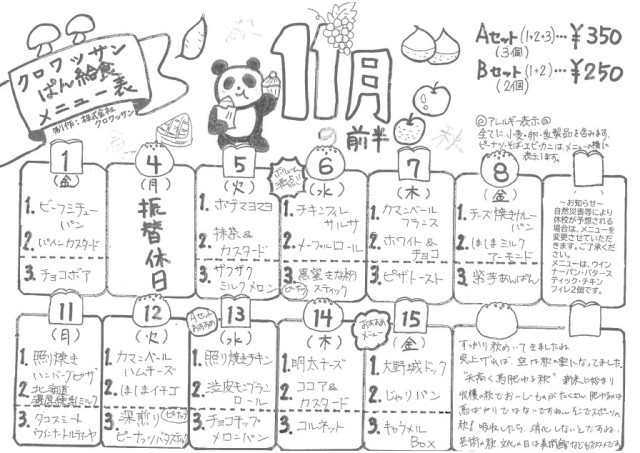 クロワッサン
ぱん給食
メニュー表
制作：株式会社
クロワッサン
11月
前半
Aセット(1・2・3)…￥350
(3個)
Bセット(1・2)…￥250
(2個)
秋
@アレルギー表示@
全てに小麦・卵・乳製品を含みます。
ピーナッツ・そば・エビ・カニは、メニューの横に
表示します。
1
(金)
1. ビーフシチュー
パン
2. パンカスタード
3. チョコボア
4
(月)
振替休日
5
(火)
1. ポテマヨマヨ
2. 抹茶&
カスタード
3. サクサク
ミルクメロン
6
(水)
1. チキンフィレ
サルサ
2. メープルロール
3. 黒蜜きな粉
スティック
7
(木)
1. カマンベール
フランス
2. ホワイト&
チョコ
3. ピザトースト
8
(金)
1. チーズ焼きカレー
パン
2. はちミルク
アーモンド
3. 紫芋あんぱん
～お知らせ～
自然災害等により
休校が予想される
場合は、メニューを
変更させていただ
きます。ご了承くだ
さい。
メニューは、ウイン
ナーパン・バタース
ティック・チキン
フィレ2個です。
11
(月)
1. 照り焼き
ハンバーグピザ
2. 北海道
濃厚練乳ミルク
3. タコスミート
ウインナートルティーヤ
12
(火)
1. カマンベール
ハムチーズ
2. はちイチゴ
3. 深煎り
ピーナッツバタースティック
Aセット
おすすめ
13
(水)
1. 照り焼きチキン
2. 渋皮モンブラン
ロール
3. チョコチップ
メロンパン
14
(木)
1. 明太チーズ
2. ココア&
カスタード
3. コルネット
おすすめ
メニュー
15
(金)
1. 大野城ドック
2. じゃりパン
3. キャラメル
Box
すっかり秋めいてきましたね
見上げれば、空は秋の雲になってました。
"天高く馬肥ゆる秋"